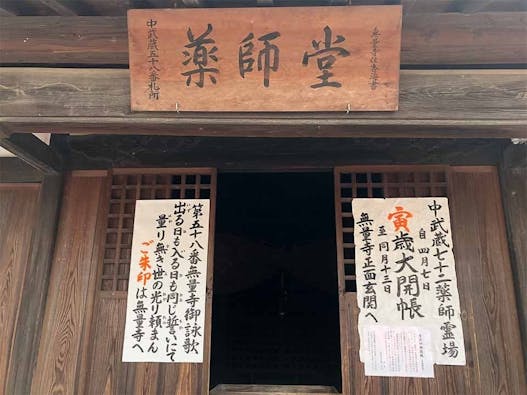 薬師堂
中武蔵五十八番札所
中武蔵七十二薬師霊場
自四月七日
寅歳大開帳
至同月十三日
無量寺正面玄関へ
第五十八番無量寺御詠歌
出る日も入る日も同じ誓いにて
量り無き世の光り頼まん
ご朱印は無量寺へ